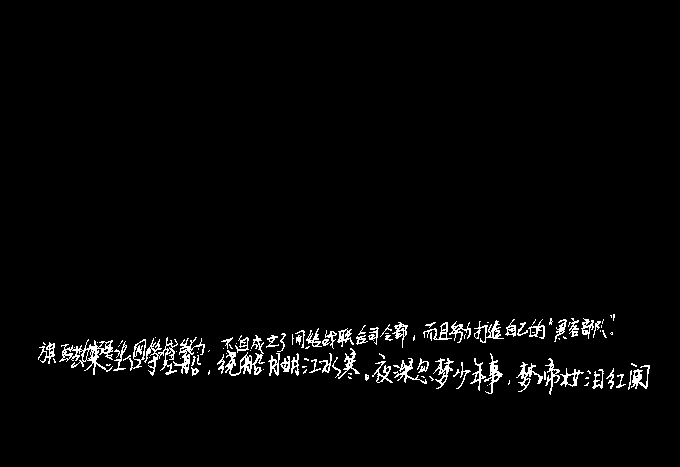 不但成立了网络战联合司令部，而且努力打造自己的“黑客部队”。
来江口守空船，绕船月明江水寒。夜深忽梦少年事，梦啼妆泪红阑